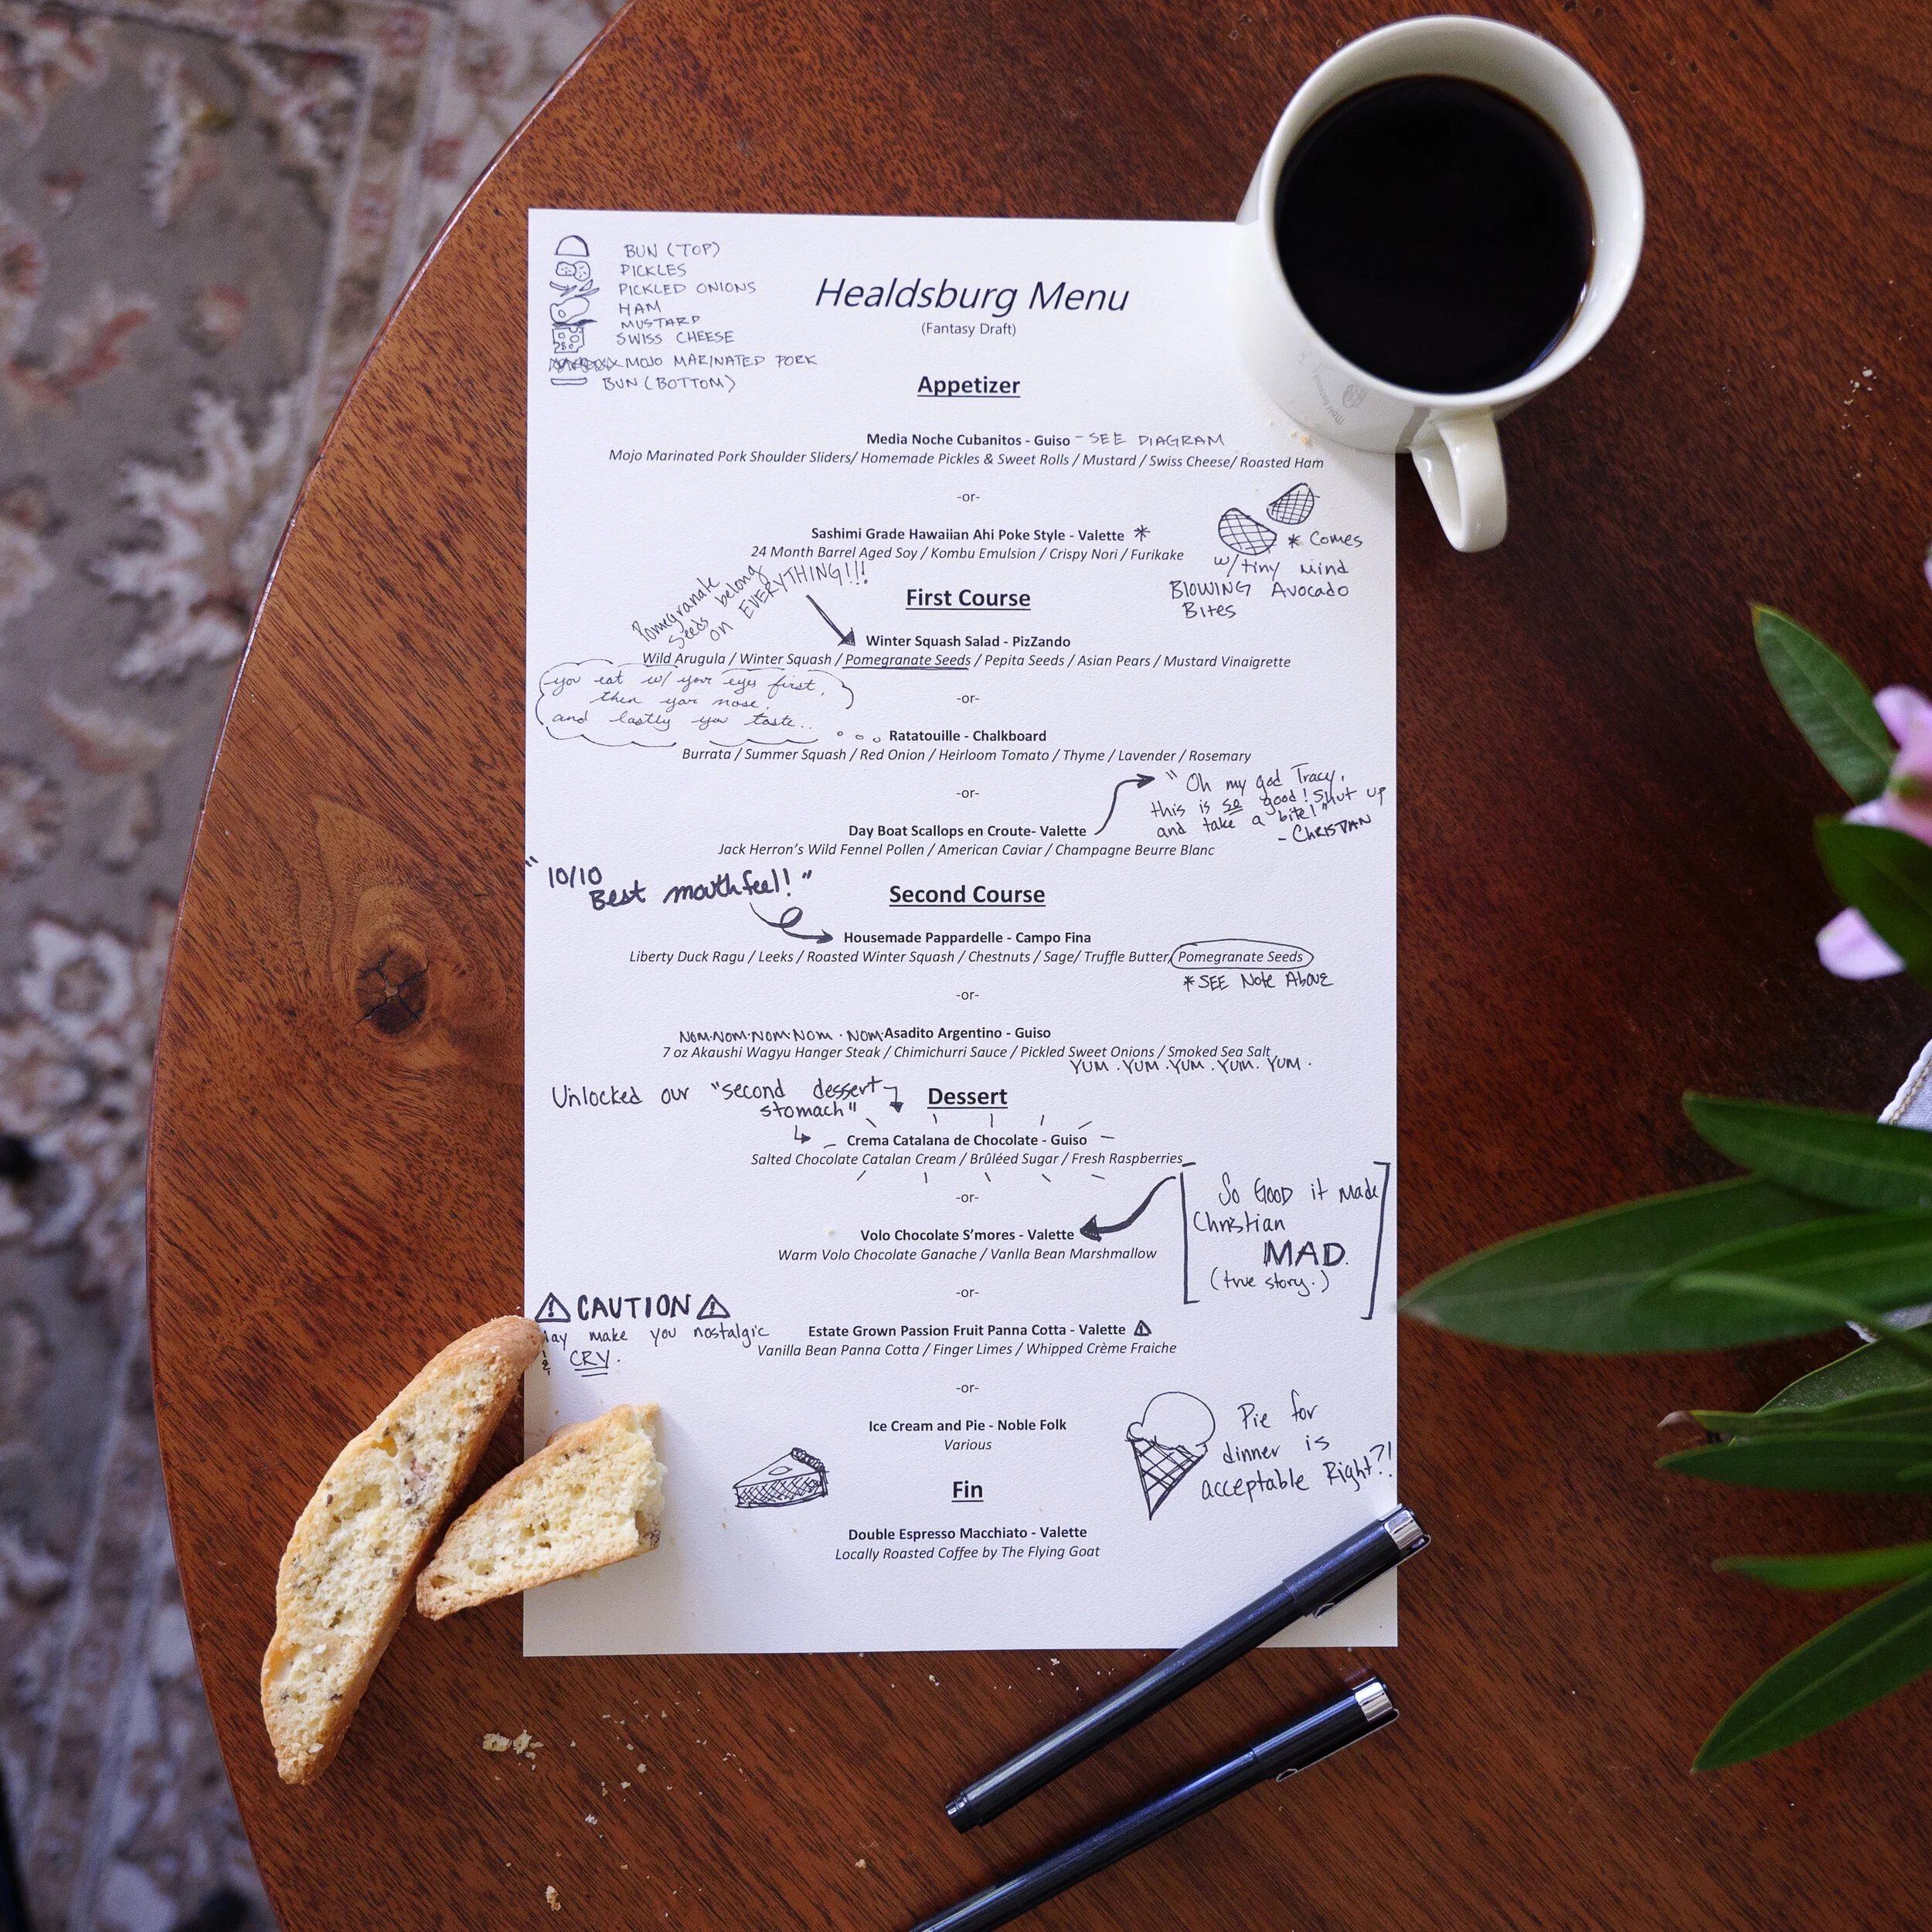 BUN (TOP)
PICKLES
PICKLED ONIONS
HAM
MUSTARD
SWISS CHEESE
MOJO MARINATED PORK
BUN (BOTTOM)
Healdsburg Menu
(Fantasy Draft)
Appetizer
Media Noche Cubanitos - Guiso - SEE DIAGRAM
Mojo Marinated Pork Shoulder Sliders/ Homemade Pickles & Sweet Rolls / Mustard / Swiss Cheese/ Roasted Ham
-or-
Sashimi Grade Hawaiian Ahi Poke Style - Valette *
24 Month Barrel Aged Soy / Kombu Emulsion / Crispy Nori / Furikake
* Comes
w/ tiny Mind
BLOWING Avocado
Bites
Pomegranate
Seeds belong
on EVERYTHING!!!
First Course
Winter Squash Salad - PizZando
Wild Arugula / Winter Squash / Pomegranate Seeds / Pepita Seeds / Asian Pears / Mustard Vinaigrette
you eat w/ your eyes first,
then your nose,
and lastly you taste...
-or-
Ratatouille - Chalkboard
Burrata / Summer Squash / Red Onion / Heirloom Tomato / Thyme / Lavender / Rosemary
-or-
" Oh my god Tracy,
this is so good! Shut up
and take a bite!"
- CHRISTIAN
Day Boat Scallops en Croute- Valette
Jack Herron's Wild Fennel Pollen / American Caviar / Champagne Beurre Blanc
" 10/10
Best mouthfeel! "
Second Course
Housemade Pappardelle - Campo Fina
Liberty Duck Ragu / Leeks / Roasted Winter Squash / Chestnuts / Sage/ Truffle Butter/ Pomegranate Seeds
* SEE Note Above
-or-
NOM·NOM·NOM·NOM·NOM· Asadito Argentino - Guiso
7 oz Akaushi Wagyu Hanger Steak / Chimichurri Sauce / Pickled Sweet Onions / Smoked Sea Salt
YUM . YUM . YUM . YUM . YUM .
Unlocked our "second dessert
stomach"
Dessert
Crema Catalana de Chocolate - Guiso
Salted Chocolate Catalan Cream / Brûléed Sugar / Fresh Raspberries
-or-
So Good it made
Christian
MAD.
(true story.)
Volo Chocolate S'mores - Valette
Warm Volo Chocolate Ganache / Vanlla Bean Marshmallow
-or-
CAUTION
may make you nostalgic
& CRY.
Estate Grown Passion Fruit Panna Cotta - Valette
Vanilla Bean Panna Cotta / Finger Limes / Whipped Crème Fraiche
-or-
Ice Cream and Pie - Noble Folk
Various
Pie for
dinner is
acceptable Right?!
Fin
Double Espresso Macchiato - Valette
Locally Roasted Coffee by The Flying Goat